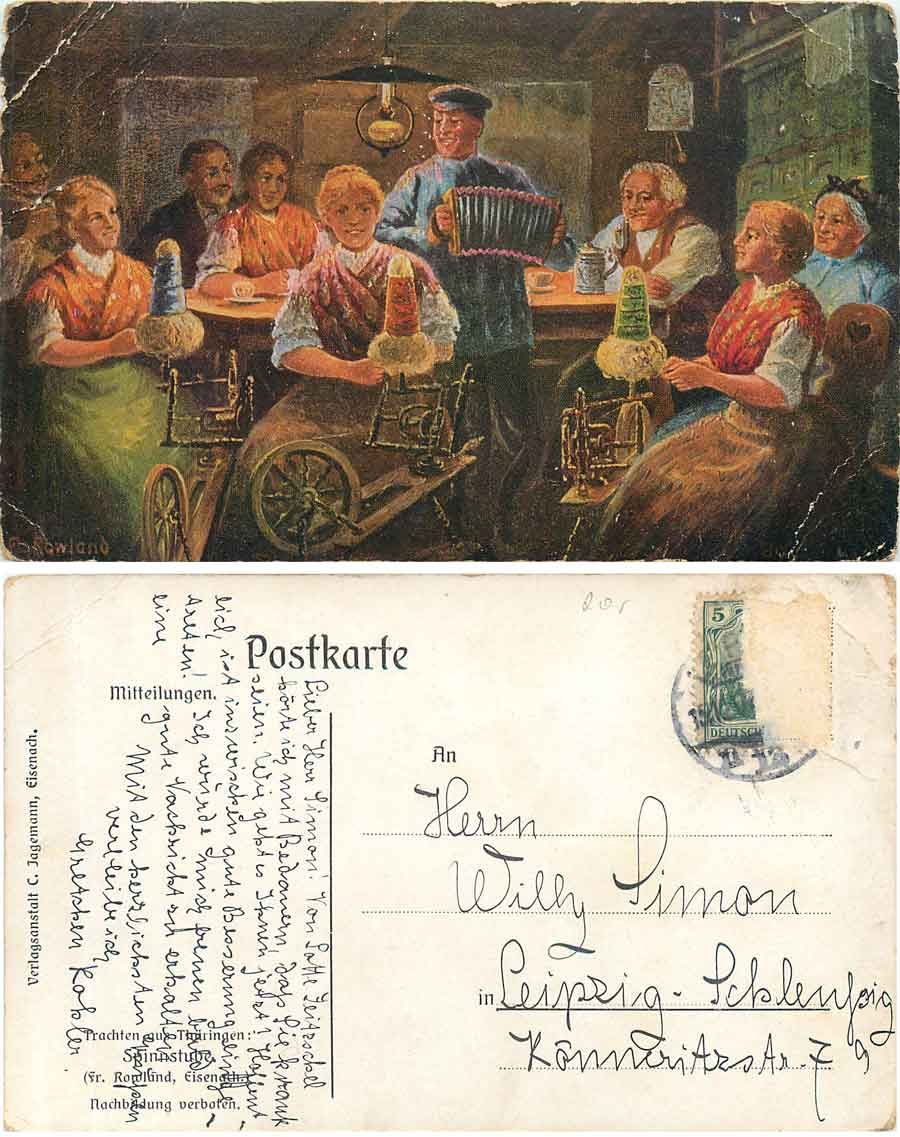 Rowland
Postkarte
Mitteilungen.
5
DEUTSCH
An
Herrn
Willy Simon
in Leipzig-Schleußig
Könneritzstr. 79
Lieber Herr Simon! Von Lotte
hörte ich mit Bedauern, daß Sie krank
seien. Wie geht es Ihnen jetzt? Hoffent-
lich ist inzwischen gute Besserung einge-
treten! Ich würde mich freuen bald
eine gute Nachricht zu erhalten.
Mit den herzlichsten
verbleibe ich
Gretchen Kohler.
Verlagsanstalt C. Jagemann, Eisenach.
Trachten aus Thüringen:
Spinnstube.
(Fr. Rowland, Eisenach.)
Nachbildung verboten.